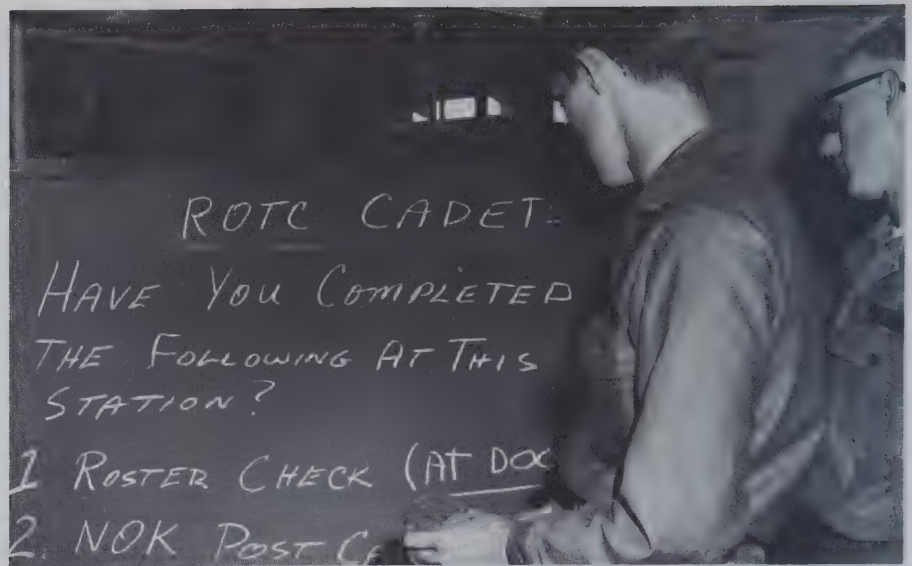 ROTC CADET-
HAVE YOU COMPLETED
THE FOLLOWING AT THIS
STATION?
1 ROSTER CHECK (AT
2. NOK POST